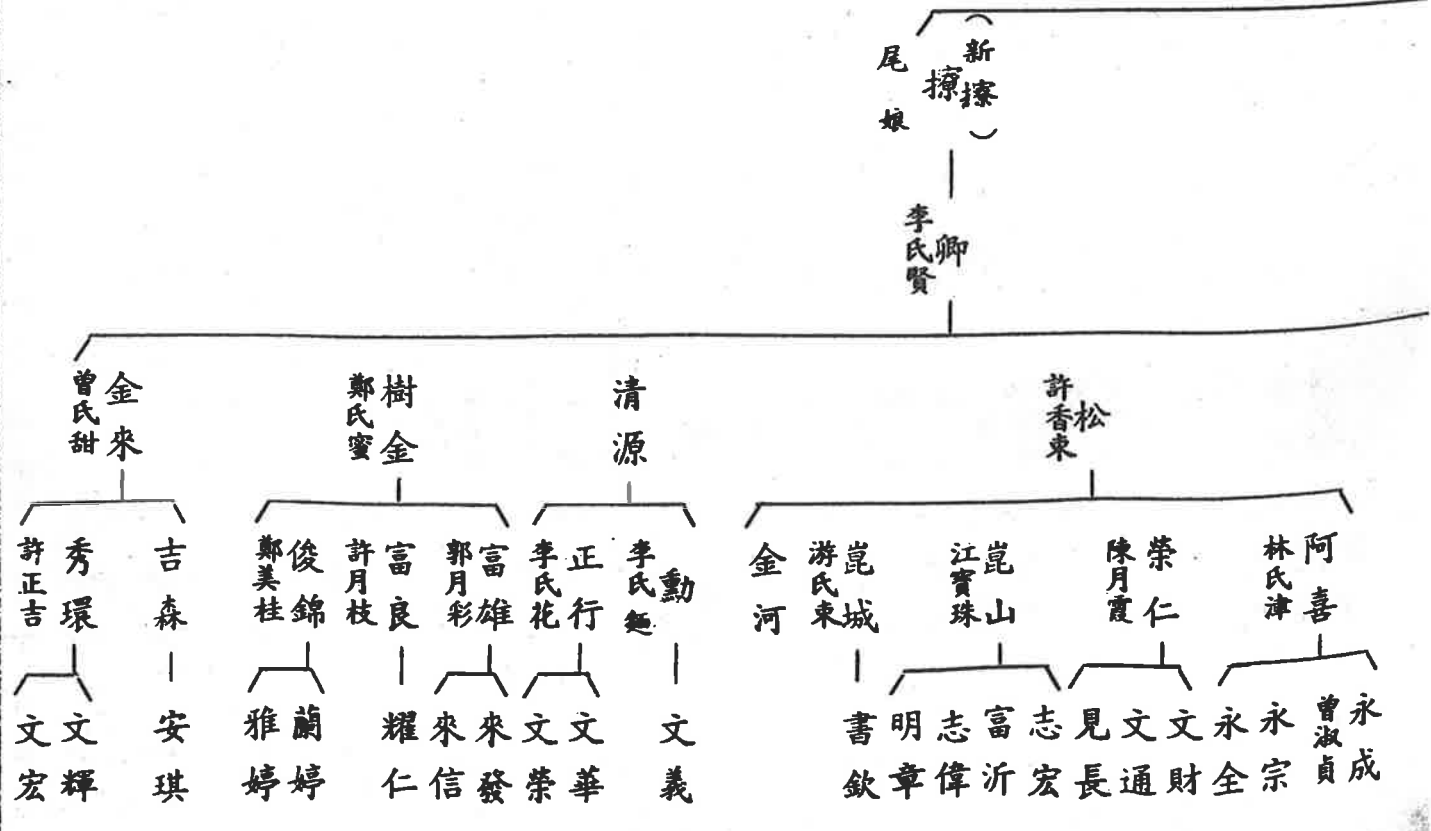 （新撩）
撩
尾娘
卿
李氏賢
松
許香東
清源
樹金
鄭氏蜜
金來
曾氏甜
阿喜
林氏津
榮仁
陳月霞
崑山
江寶珠
崑城
游氏東
金河
勳
李氏麵
正行
李氏花
富雄
郭月彩
富良
許月枝
俊錦
鄭美桂
吉森
秀環
許正吉
永成
曾淑貞
永宗
永全
文財
文通
見長
志宏
富沂
志偉
明章
書欽
文義
文華
文榮
來發
來信
耀仁
蘭婷
雅婷
安琪
文輝
文宏